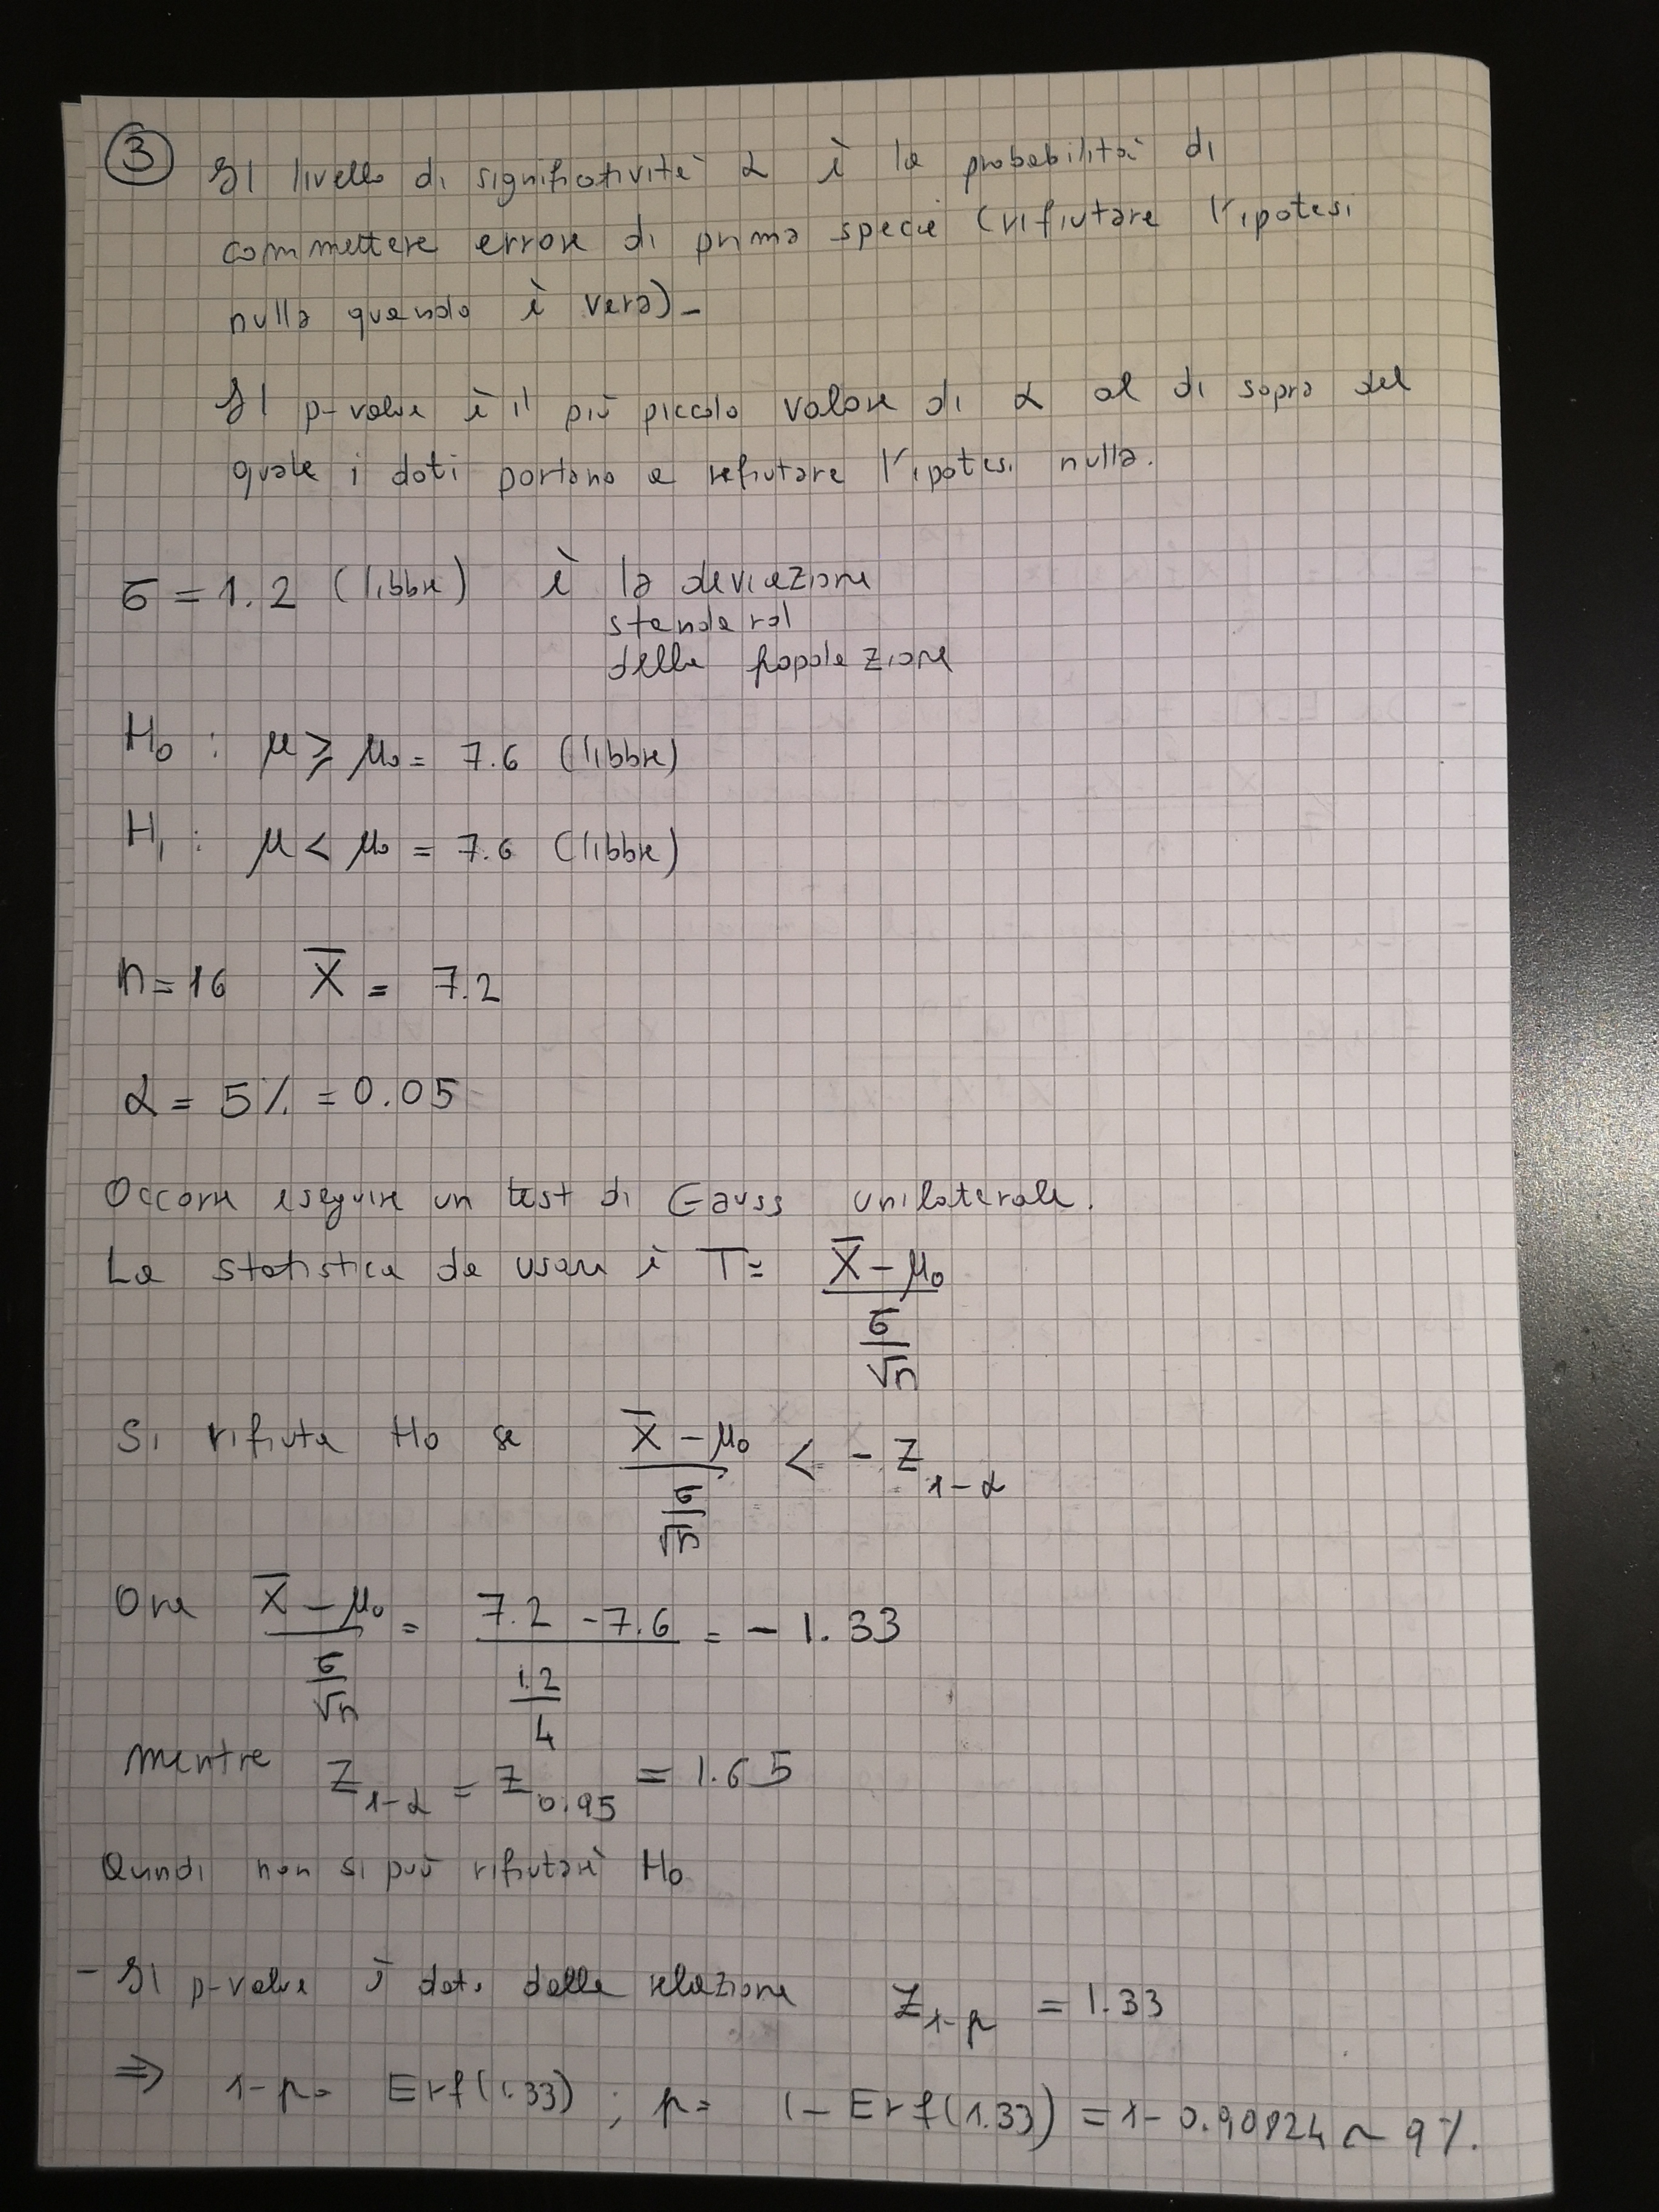 3 Il livello di significatività α è la probabilità di
commettere errore di prima specie (rifiutare l'ipotesi
nulla quando è vera)-
Il p-value è il più piccolo valore di α al di sopra del
quale i dati portano a refiutare l'ipotesi nulla.
σ = 1.2 (libbre) è la deviazione
standard
della popolazione
H₀ : μ ⩾ μ₀ = 7.6 (libbre)
H₁ : μ < μ₀ = 7.6 (libbre)
n = 16 X̅ = 7.2
α = 5% = 0.05
Occorre eseguire un test di Gauss unilaterale.
La statistica da usare è T = (X̅ - μ₀) / (σ/√n)
Si rifiuta H₀ se (X̅ - μ₀) / (σ/√n) < - Z_{1-α}
Ora (X̅ - μ₀) / (σ/√n) = (7.2 - 7.6) / (1.2/4) = - 1.33
mentre Z_{1-α} = Z_{0.95} = 1.65
Quindi non si può rifiutare H₀
- Il p-value è dato dalla relazione Z_{1-p} = 1.33
⇒ 1-p = Erf(1.33) ; p = 1 - Erf(1.33) = 1 - 0.90824 ~ 9%.